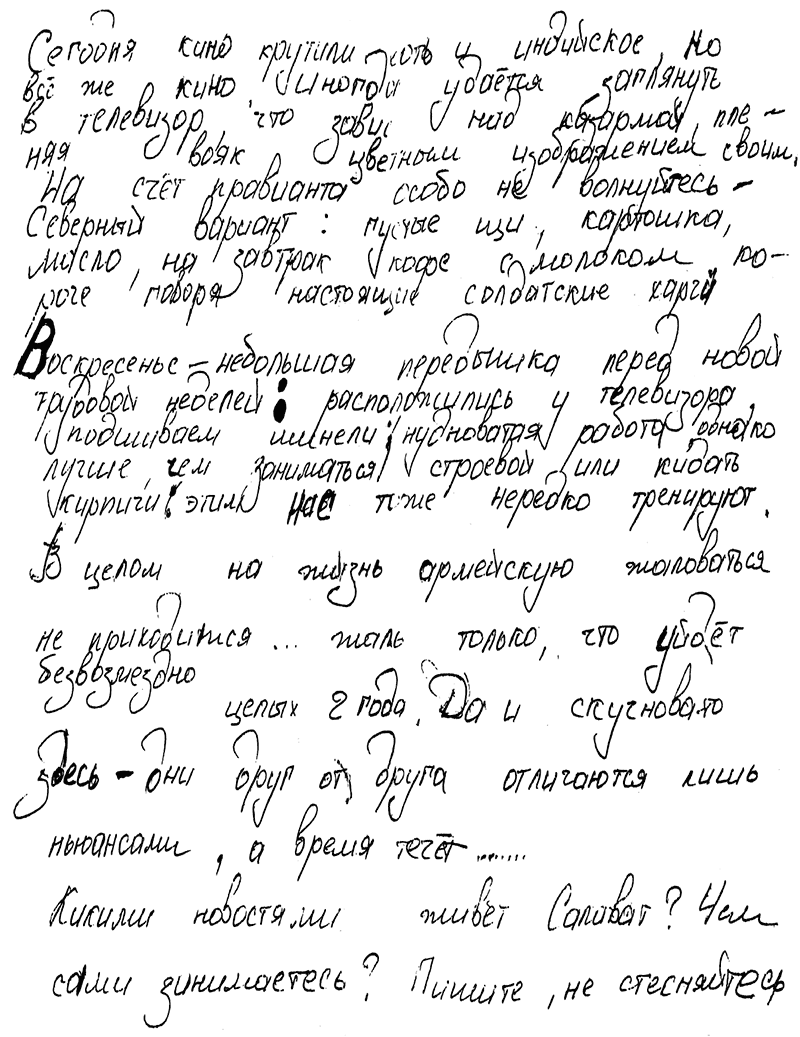 Сегодня кино крутили хоть и индийское, но
всё же кино. Иногда удаётся заглянуть
в телевизор, что завис над казармой, пле-
няя вояк цветным изображением своим.
На счёт правианта особо не волнуйтесь -
Северный вариант: пустые щи, картошка,
масло, на завтрак кофе с молоком ко-
роче говоря настоящие солдатские харчи
Воскресенье - небольшая передышка перед новой
трудовой неделей: расположились у телевизора
подшиваем шинели; нудноватая работа, однако
лучше, чем заниматься строевой или кидать
кирпичи: этим нас тоже нередко тренируют.
В целом на жизнь армейскую жаловаться
не приходится... жаль только, что уйдёт
безвозмездно
целых 2 года. Да и скучновато
здесь - дни друг от друга отличаются лишь
ньюансами, а время течёт........
Какими новостями живёт Салават? Чем
сами занимаетесь? Пишите, не стесняйтесь